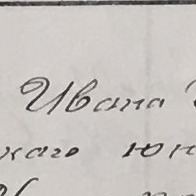 Ивана
каго юн